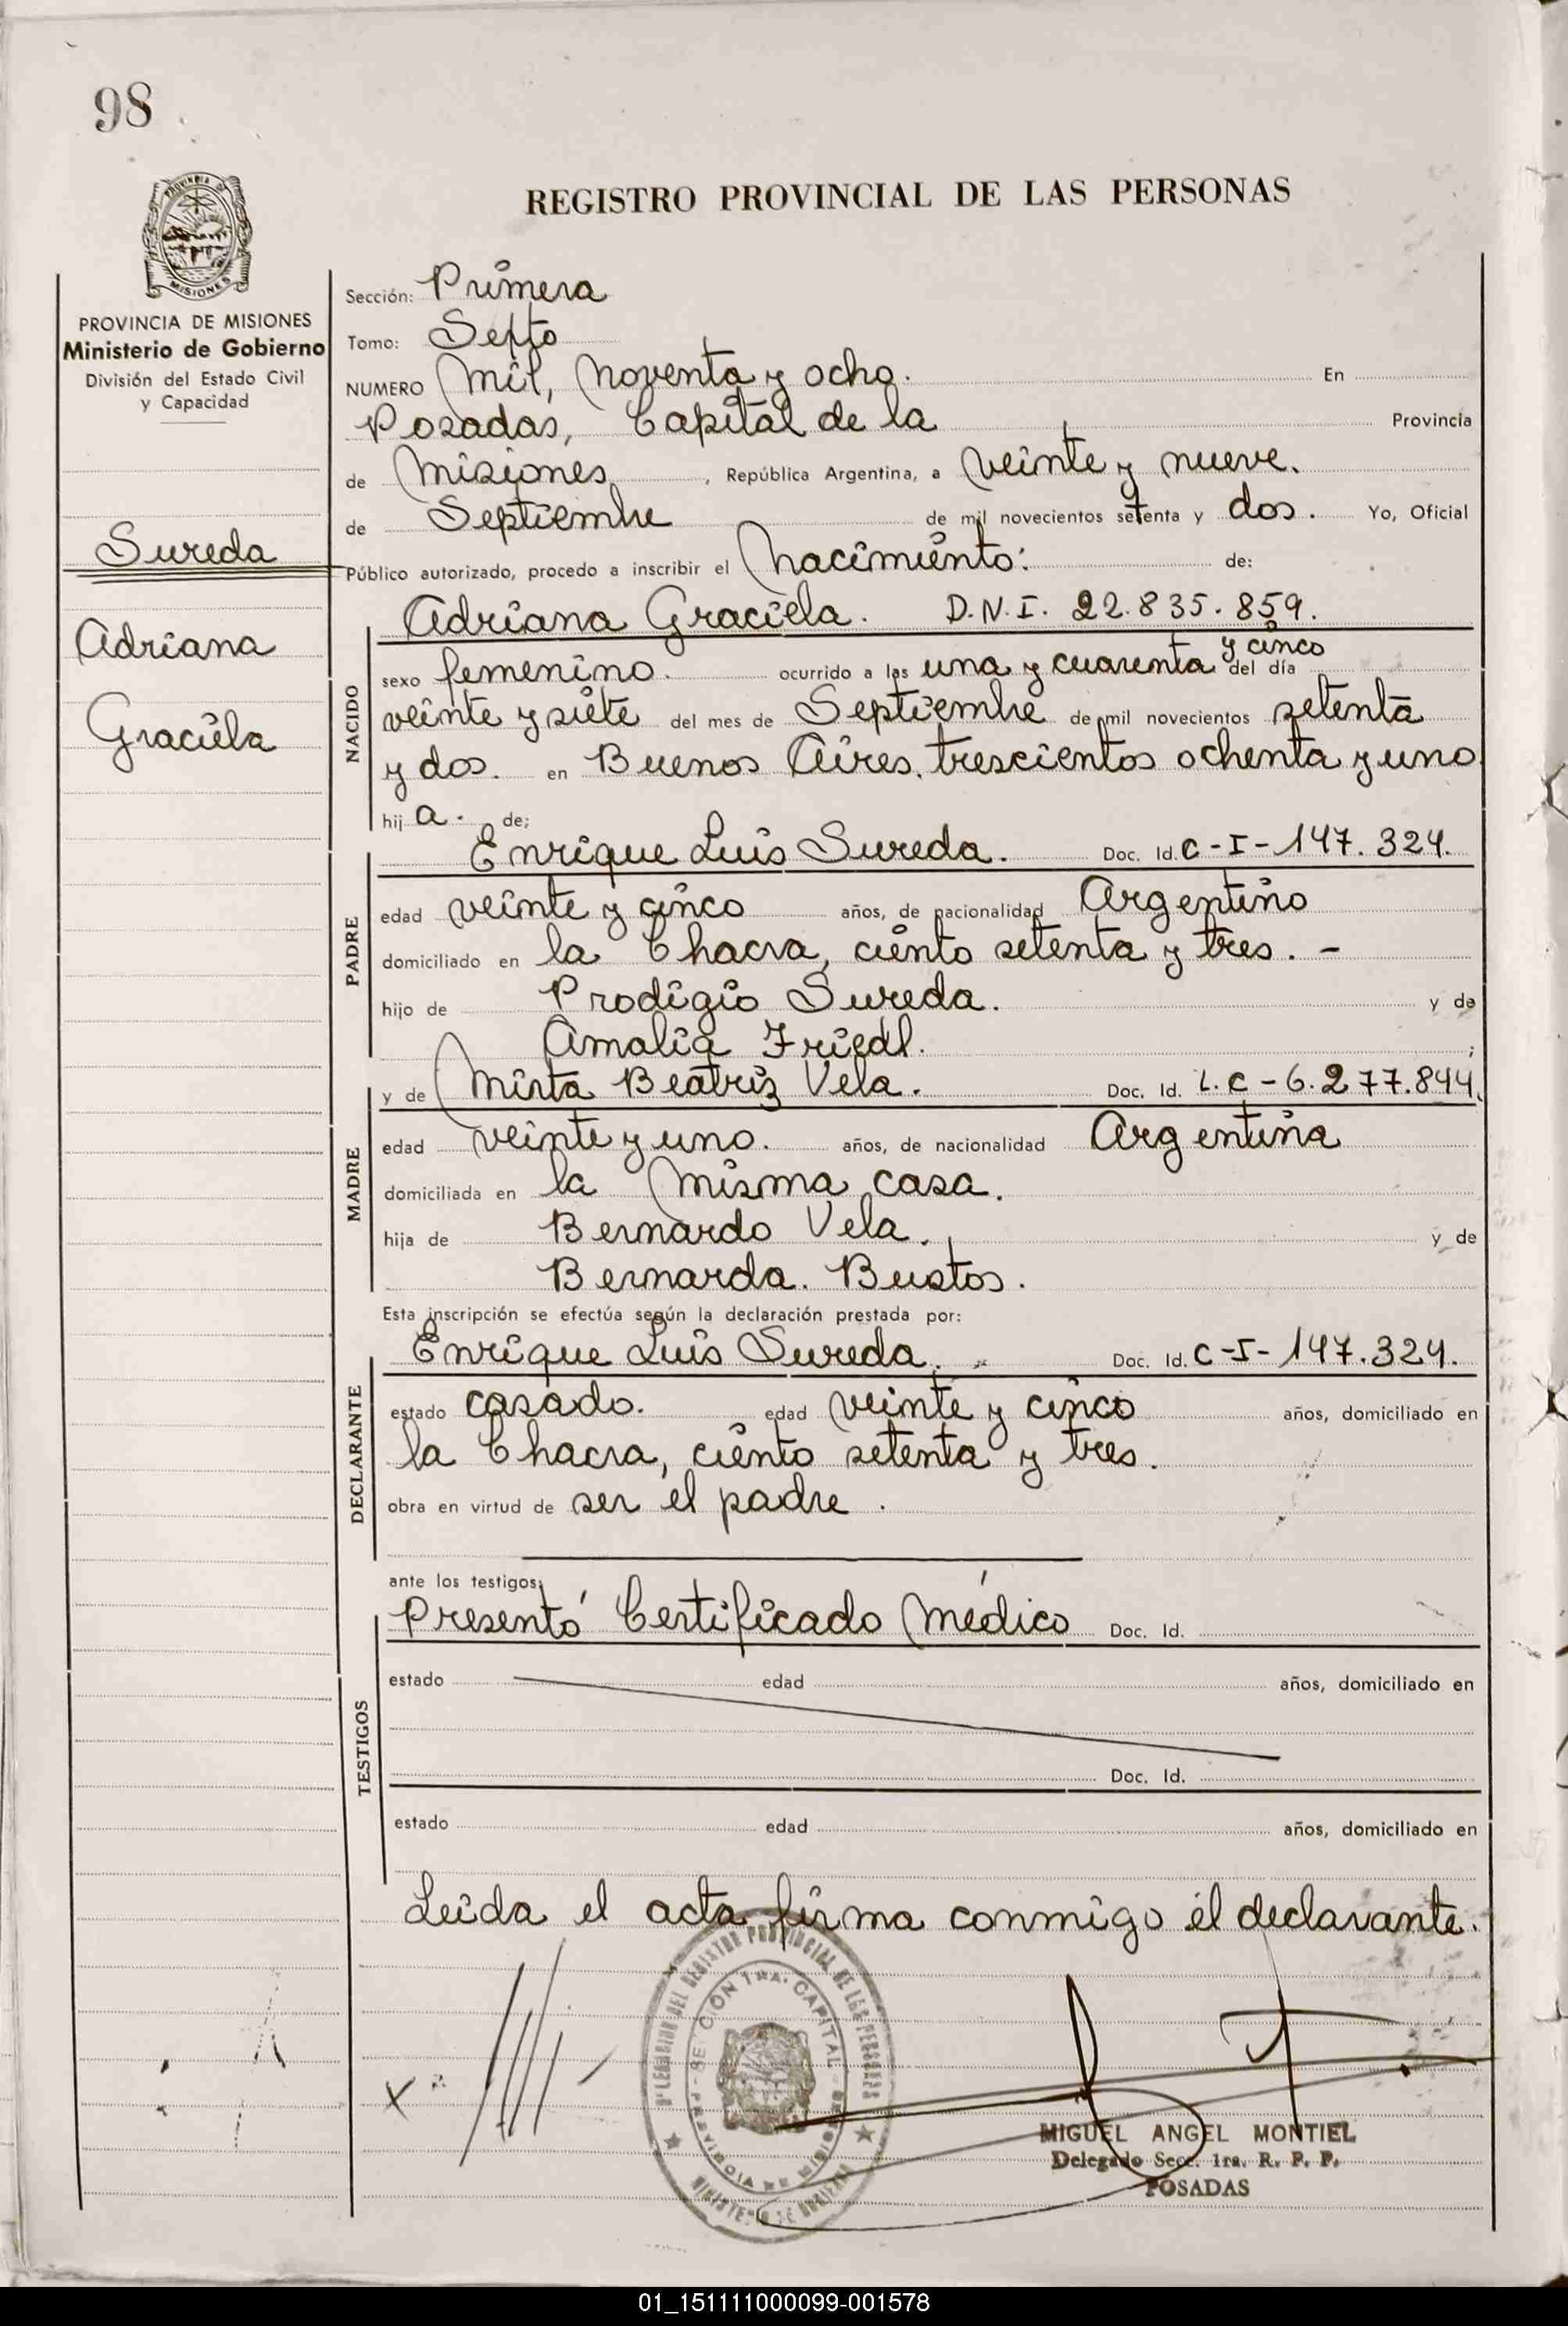 98
REGISTRO PROVINCIAL DE LAS PERSONAS
PROVINCIA DE MISIONES
Ministerio de Gobierno
División del Estado Civil
y Capacidad
Sureda
Adriana
Graciela
Sección: Primera
Tomo: Septo
NUMERO Mil, Noventa y ocho. En
Posadas, Capital de la Provincia
de Misiones, República Argentina, a veinte y nueve.
de Septiembre de mil novecientos setenta y dos. Yo, Oficial
Público autorizado, procedo a inscribir el Nacimiento: de:
Adriana Graciela. D.N.I. 22.835.859.
NACIDO
sexo femenino. ocurrido a las una y cuarenta y cinco del día
veinte y siete del mes de Septiembre de mil novecientos setenta
y dos. en Buenos Aires, trescientos ochenta y uno
hij a. de;
Enrique Luis Sureda. Doc. Id. C-I-147.324.
PADRE
edad veinte y cinco años, de nacionalidad Argentino
domiciliado en la Chacra, ciento setenta y tres. -
hijo de Prodigio Sureda. y de
Amalia Friedl. ;
y de Mirta Beatriz Vela. Doc. Id. L.C-6.277.844.
MADRE
edad veinte y uno. años, de nacionalidad Argentina
domiciliada en la misma casa.
hija de Bernardo Vela. y de
Bernarda. Bustos.
Esta inscripción se efectúa según la declaración prestada por:
Enrique Luis Sureda. Doc. Id. C-I-147.324.
DECLARANTE
estado casado. edad veinte y cinco años, domiciliado en
la Chacra, ciento setenta y tres.
obra en virtud de ser el padre.
ante los testigos:
Presentó Certificado Médico Doc. Id.
TESTIGOS
estado edad años, domiciliado en
Doc. Id.
estado edad años, domiciliado en
Leida el acta firma conmigo él declarante.
X
MIGUEL ANGEL MONTIEL
Delegado Secc. 1ra. R. P. P.
POSADAS
01_151111000099-001578